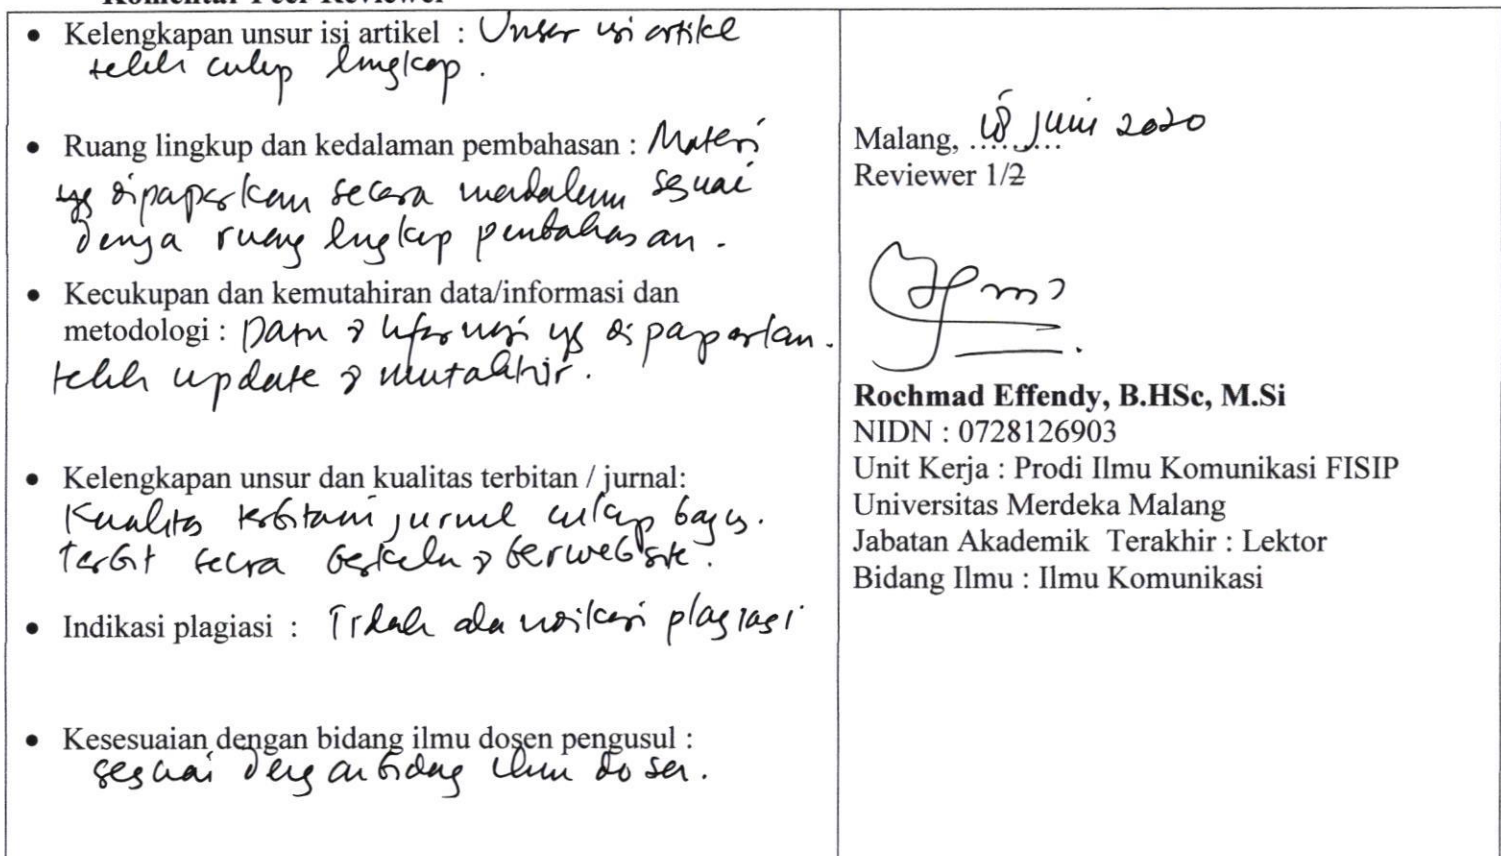 Komentar Peer Reviewer
• Kelengkapan unsur isi artikel : Unsur isi artikel
telah cukup lengkap.
• Ruang lingkup dan kedalaman pembahasan : Materi
yg dipaparkan secara mendalam sesuai
dengan ruang lingkup pembahasan.
• Kecukupan dan kemutahiran data/informasi dan
metodologi : Data & informasi yg dipaparkan.
telah update & mutakhir.
• Kelengkapan unsur dan kualitas terbitan / jurnal:
Kualitas terbitan jurnal cukup bagus.
terbit secara berkala & berwebsite.
• Indikasi plagiasi : Tidak ada indikasi plagiasi
• Kesesuaian dengan bidang ilmu dosen pengusul :
sesuai dengan bidang ilmu dosen.
Malang, ......... Juni 2020
Reviewer 1/2
Rochmad Effendy, B.HSc, M.Si
NIDN : 0728126903
Unit Kerja : Prodi Ilmu Komunikasi FISIP
Universitas Merdeka Malang
Jabatan Akademik Terakhir : Lektor
Bidang Ilmu : Ilmu Komunikasi